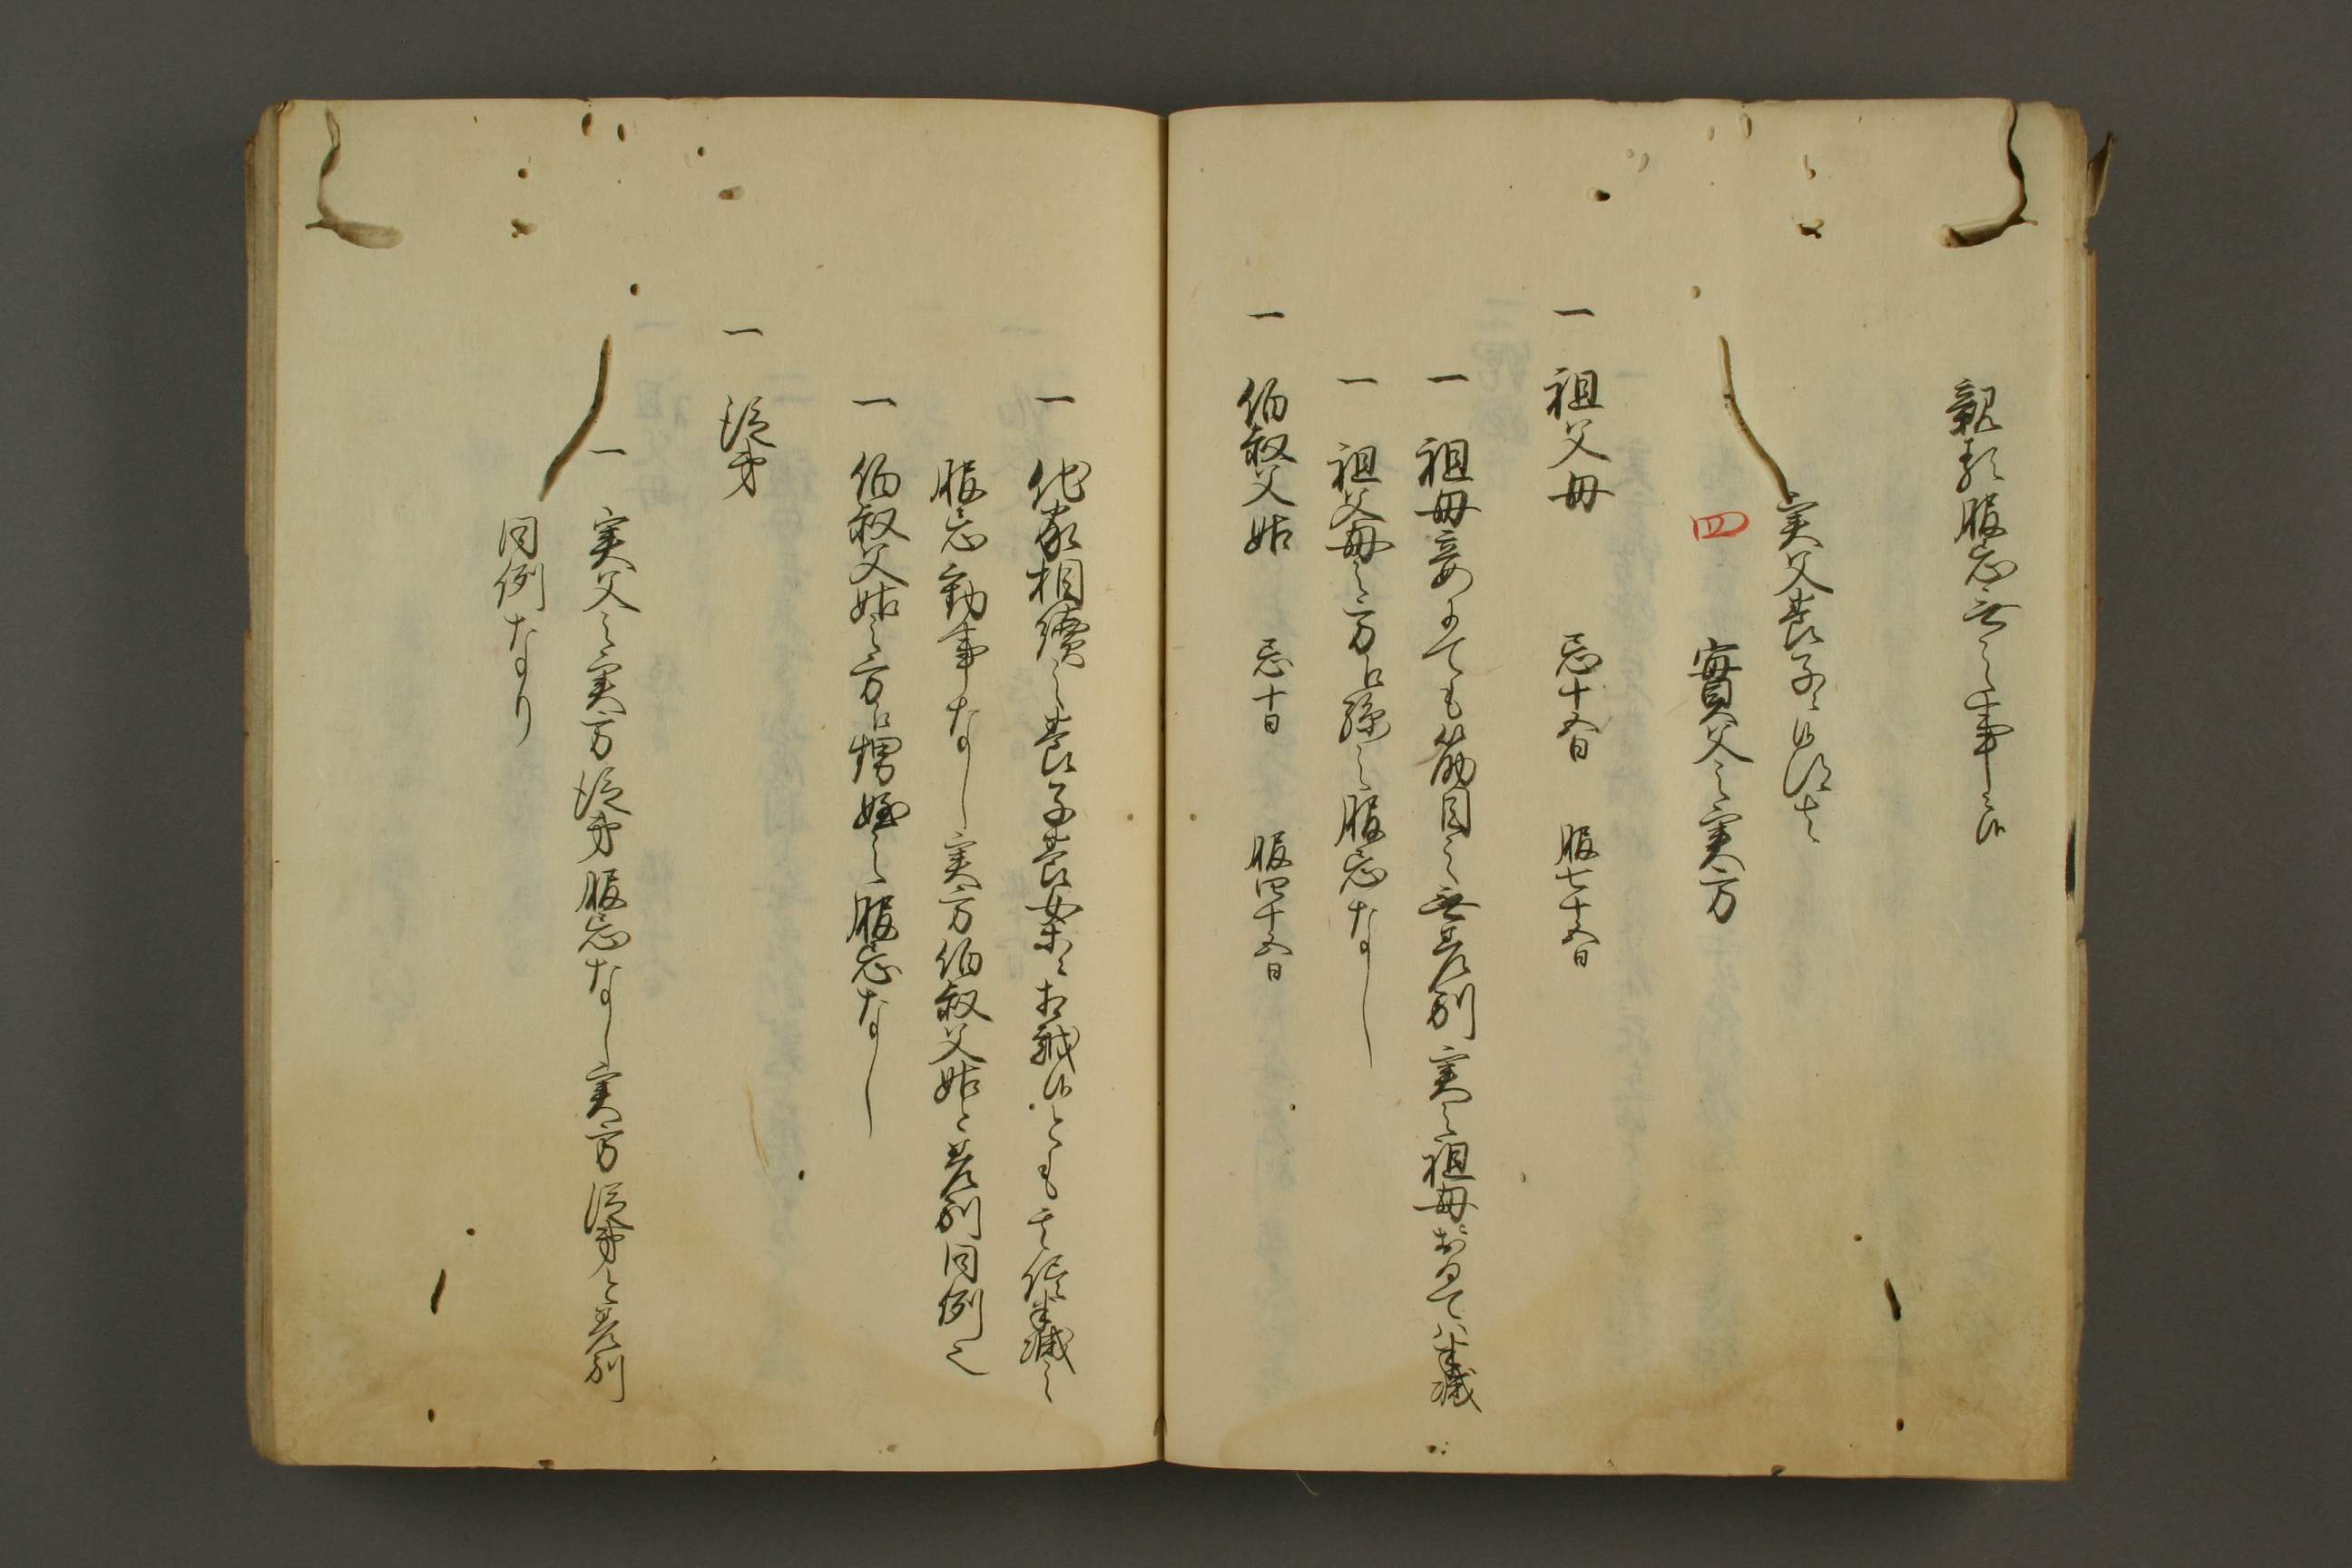 親類服忌無之事ニ候
実父養子ニ候得者
四　實父之実方
一　祖父母　忌十五日　服七十五日
一　祖母妾にても筋目之無差別実之祖母おゐてハ半減
一　祖父母之方ニ孫之服忌なし
一　伯叔父姑　忌十日　服四十五日
一　他家相續之養子養女ニ相成候とも其侭半減之
服忌勤事なし実方伯叔父姑ニ差別同例也
一　伯叔父姑之方ニ甥姪之服忌なし
一　従弟
一　実父之実方従弟服忌なし実方従弟と差別
同例なり